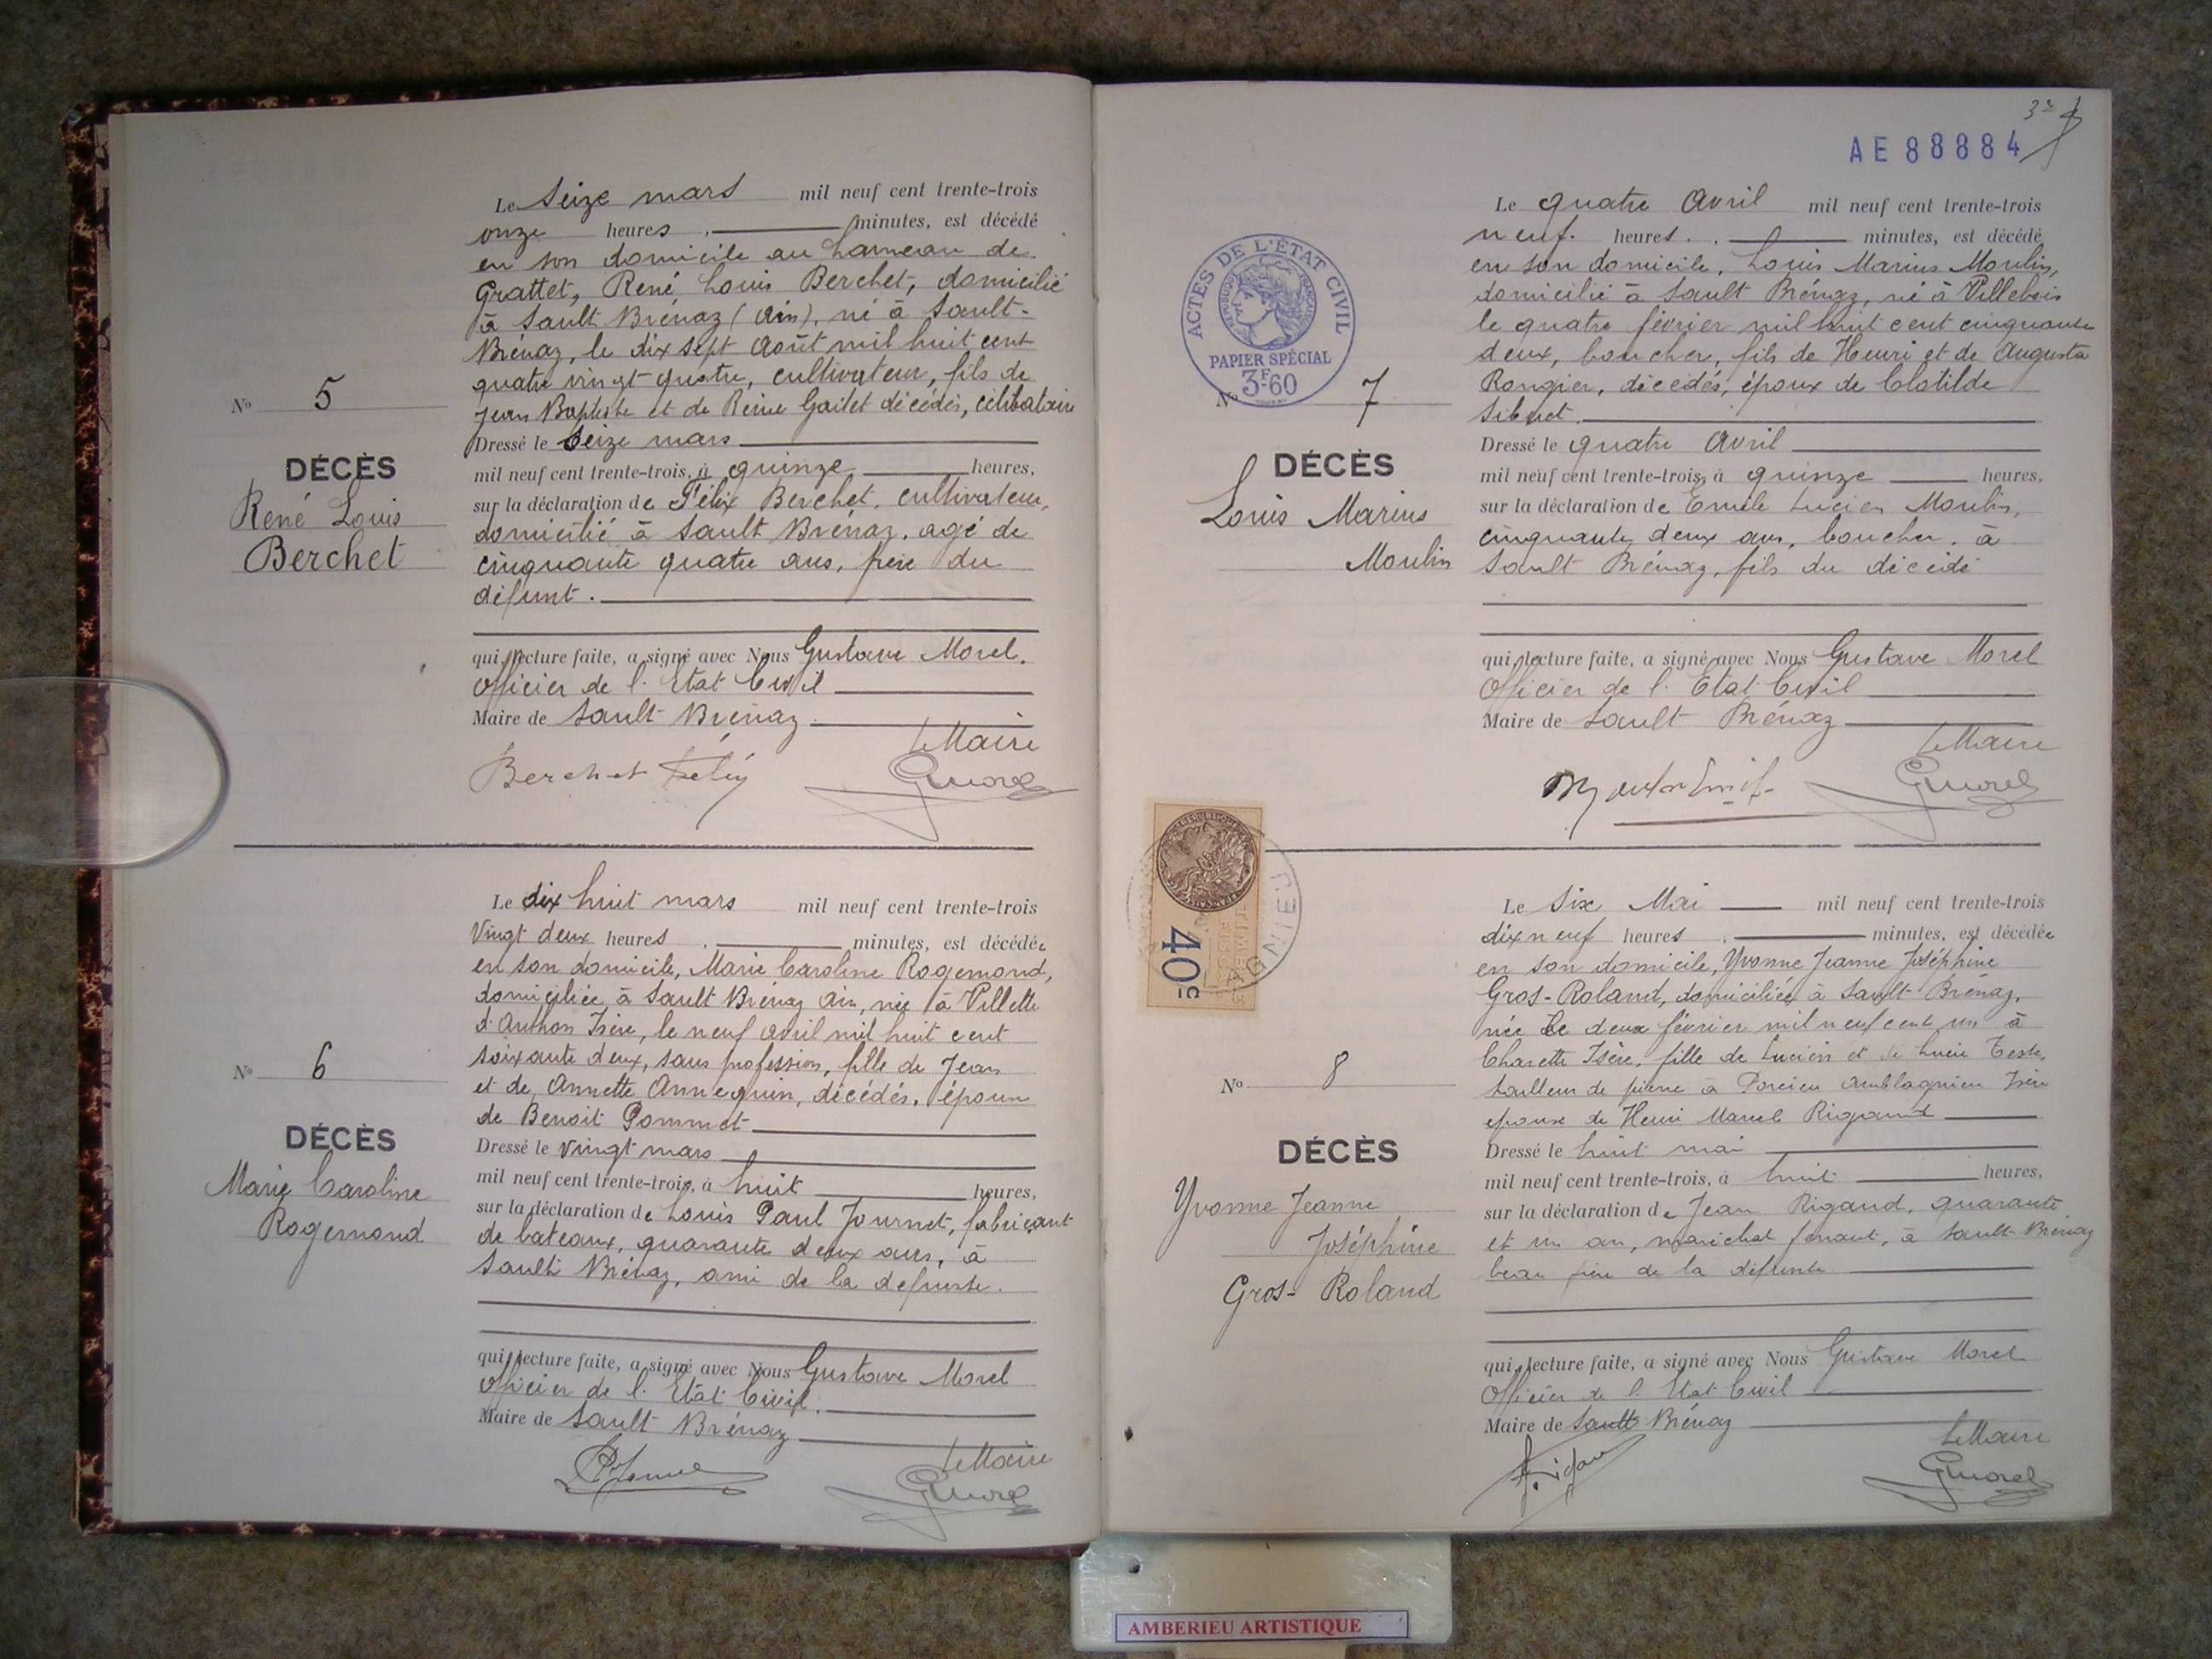 Le Seize mars mil neuf cent trente-trois
onze heures, minutes, est décédé
en son domicile au hameau de
Grattet, René Louis Berchet, domicilié
à Sault Brénaz (Ain), né à Sault-
Brénaz, le dix sept Août mil huit cent
quatre vingt quatre, cultivateur, fils de
Jean Baptiste et de Reine Gailet décédés, célibataire
No 5
DÉCÈS
René Louis
Berchet
Dressé le Seize mars
mil neuf cent trente-trois, à quinze heures,
sur la déclaration de Félix Berchet, cultivateur,
domicilié à Sault Brénaz, agé de
cinquante quatre ans, frère du
défunt.
qui, lecture faite, a signé avec Nous Gustave Morel.
Officier de l'Etat Civil
Maire de Sault Brénaz
Le Maire
Berchet Félix
GMorel
Le dix huit mars mil neuf cent trente-trois
Vingt deux heures, minutes, est décédée
en son domicile, Marie Caroline Rogemond,
domiciliée à Sault Brénaz Ain, née à Villette
d'Anthon Isère, le neuf avril mil huit cent
soixante deux, sans profession, fille de Jean
et de Annette Annequin, décédés, épouse
de Benoit Pommet
No 6
DÉCÈS
Marie Caroline
Rogemond
Dressé le vingt mars
mil neuf cent trente-trois, à huit heures,
sur la déclaration de Louis Paul Journet, fabricant
de bateaux, quarante deux ans, à
Sault Brénaz, ami de la défunte.
qui, lecture faite, a signé avec Nous Gustave Morel
Officier de l'Etat Civil.
Maire de Sault Brénaz
Le Maire
GMorel
AE 88884
ACTES DE L'ÉTAT CIVIL
RÉPUBLIQUE FRANÇAISE
PAPIER SPÉCIAL
3F.60
Le quatre Avril mil neuf cent trente-trois
neuf heures, minutes, est décédé
en son domicile, Louis Marius Moulin,
domicilié à Sault Brénaz, né à Villebois
le quatre février mil huit cent cinquante
deux, boucher, fils de Henri et de Augusta
Rougier, décédés, époux de Clotilde
Sibuet.
No 7
DÉCÈS
Louis Marius
Moulin
Dressé le quatre Avril
mil neuf cent trente-trois, à quinze heures,
sur la déclaration de Emile Lucien Moulin,
cinquante deux ans, boucher, à
Sault Brénaz, fils du décédé
qui, lecture faite, a signé avec Nous Gustave Morel
Officier de l'Etat Civil
Maire de Sault Brénaz
Le Maire
GMorel
40
LAGNIEU
Le Six Mai mil neuf cent trente-trois
dix neuf heures, minutes, est décédée
en son domicile, Yvonne Jeanne Joséphine
Gros-Roland, domiciliée à Sault Brénaz,
née le deux février mil neuf cent un à
Charette Isère, fille de Lucien et de Lucie Teste,
tailleur de pierre à Porcieu Amblagnieu Isère
épouse de Henri Marcel Rigaud
No 8
DÉCÈS
Yvonne Jeanne
Joséphine
Gros-Roland
Dressé le huit mai
mil neuf cent trente-trois, à huit heures,
sur la déclaration de Jean Rigaud, quarante
et un an, maréchal ferrant, à Sault-Brénaz
beau frère de la défunte
qui, lecture faite, a signé avec Nous Gustave Morel
Officier de l'Etat Civil
Maire de Sault Brénaz
Le Maire
GMorel
AMBERIEU ARTISTIQUE